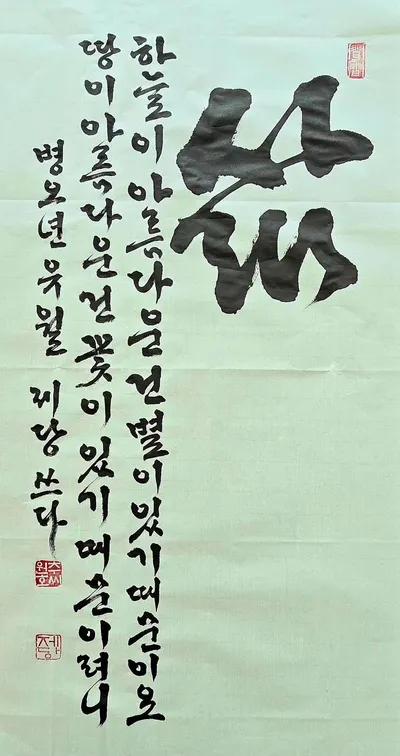 하늘이 아름다운건 별이 있기 때문이오
땅이 아름다운건 꽃이 있기 때문이려니
병오년 유월 제당 쓰다